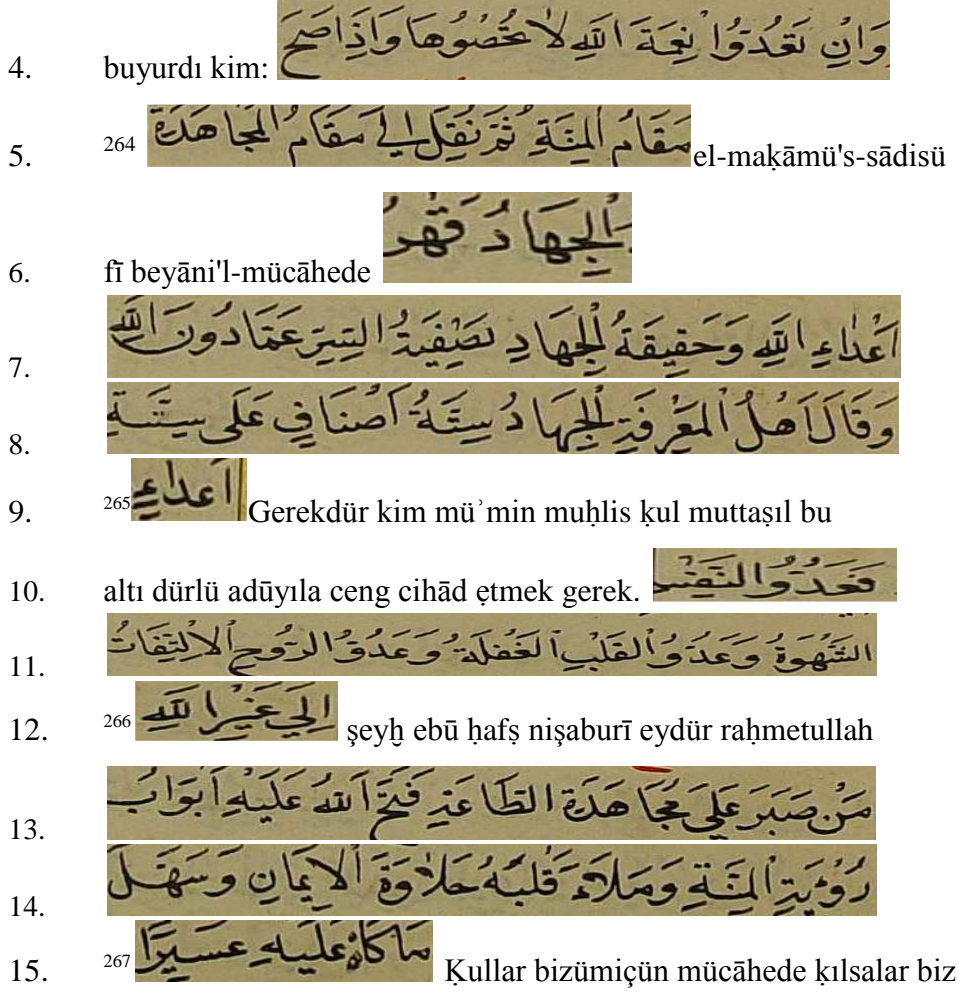 4. buyurdı kim: وَاِنْ تَعُدُّوا نِعْمَةَ اللّٰهِ لَا تُحْصُوهَا وَاِذَا صَحَّ
5. 264 مَقَامُ الْمِنَّةِ ثُمَّ نُقِلَ اِلَي مَقَامُ الْمُجَاهَدَةِ el-maḳāmü's-sādisü
6. fī beyāni'l-mücāhede اَلْجِهَادُ قَهْرُ
7. اَعْدَاءِ اللّٰهِ وَحَقِيقَةُ الْجِهَادِ تَصْفِيَةُ السِّرِّ عَمَّا دُونَ اللّٰهِ
8. وَقَالَ اَهْلُ الْمَعْرِفَةِ الْجِهَادُ سِتَّةُ اَصْنَافٍ عَلَى سِتَّةِ
9. 265 اَعْدَاءٍ Gerekdür kim müʾmin muḥlis ḳul muttaṣıl bu
10. altı dürlü adūyıla ceng cihād ẹtmek gerek. فَعَدُوُّ النَّفْسِ
11. الشَّهْوَةُ وَعَدُوُّ الْقَلْبِ الْغَفْلَةُ وَعَدُوُّ الرُّوحِ الْاِلْتِفَاتُ
12. 266 اِلَي غَيْرِ اللّٰهِ şeyḫ ebū ḥafṣ nişaburī eydür raḥmetullah
13. مَنْ صَبَرَ عَلَي مُجَاهَدَةِ الطَّاعَةِ فَتَحَ اللّٰهُ عَلَيْهِ اَبْوَابَ
14. رُؤْيَةِ الْمِنَّةِ وَمَلَاءَ قَلْبَهُ حَلَاوَةَ الْاِيمَانِ وَسَهَّلَ
15. 267 مَا كَانَ عَلَيْهِ عَسِيرًا Ḳullar bizümiçün mücāhede ḳılsalar biz